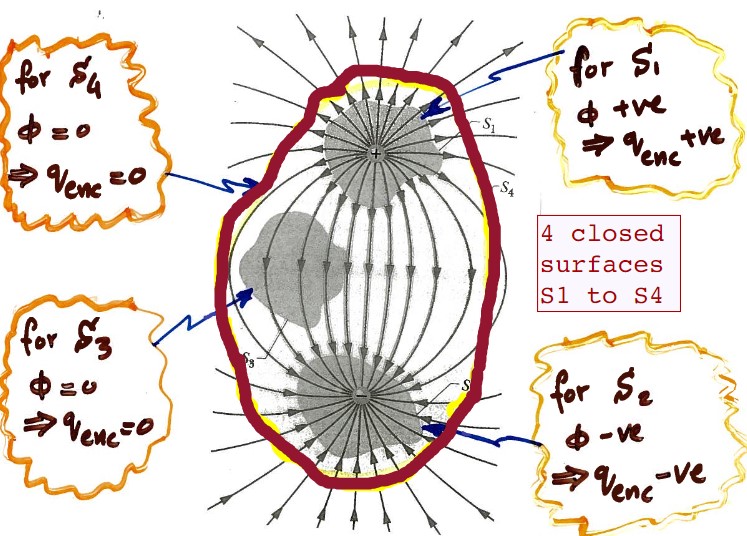 for S4
Φ = 0
⇒ qenc = 0
for S1
Φ +ve
⇒ qenc +ve
+
S1
S4
4 closed
surfaces
S1 to S4
for S3
Φ = 0
⇒ qenc = 0
S3
−
S
for S2
Φ -ve
⇒ qenc -ve